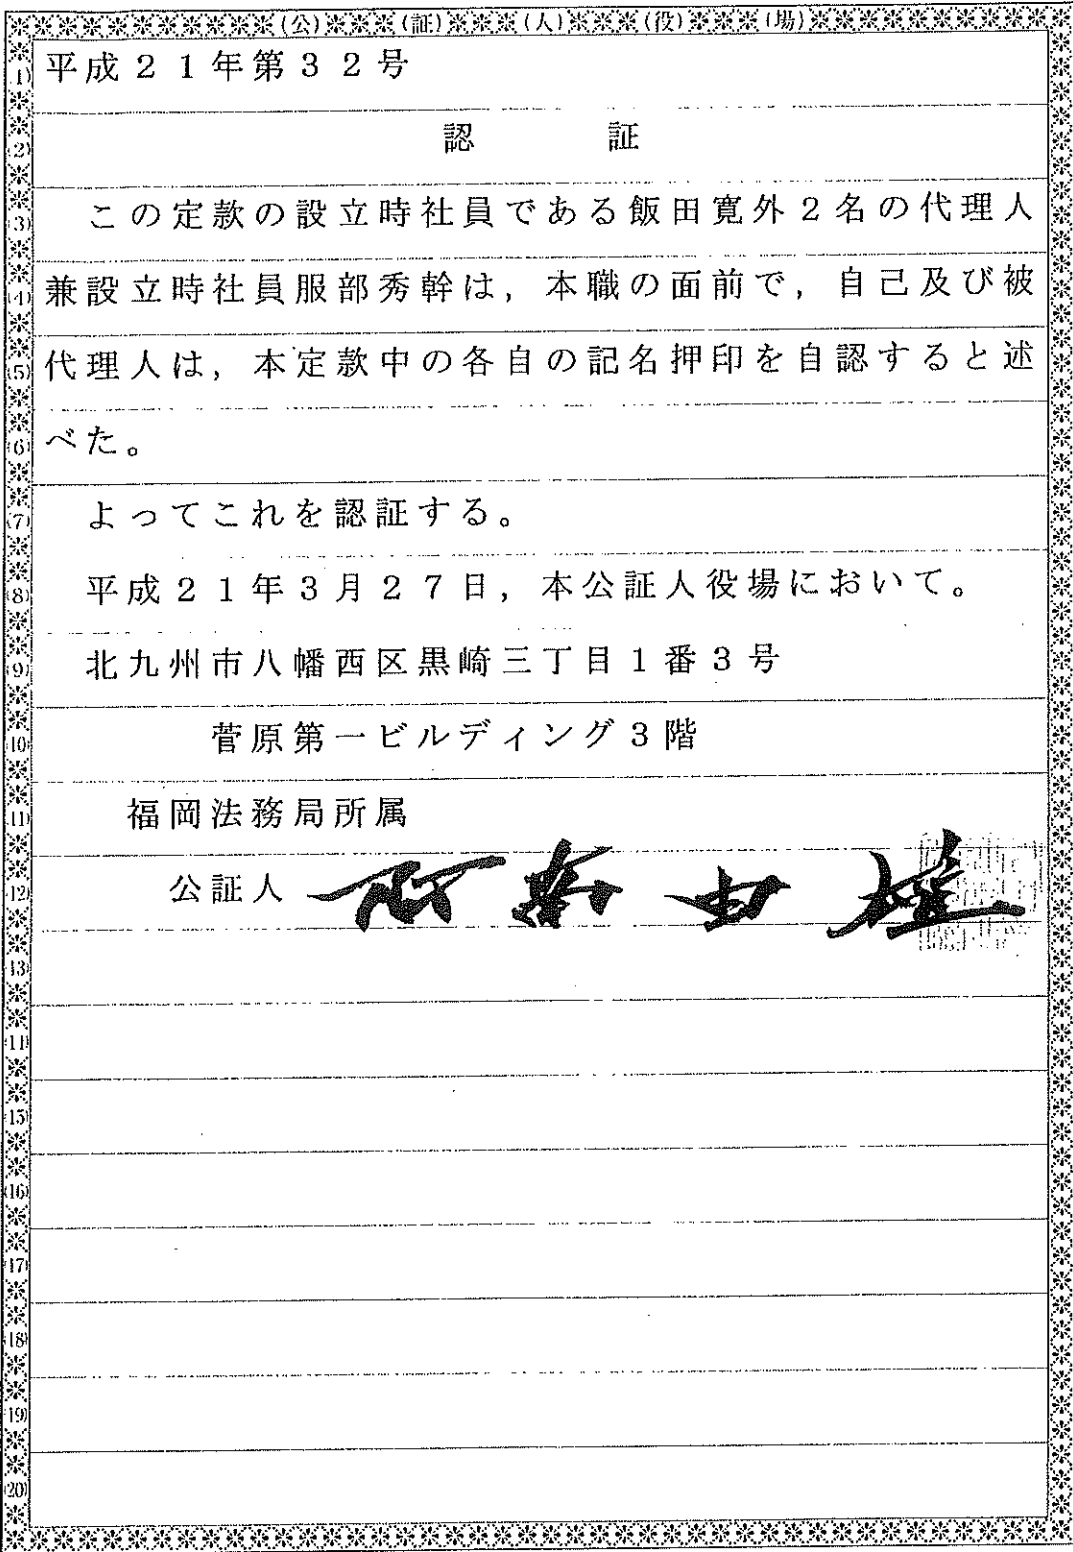 (公)(証)(人)(役)(場)
(1) 平成21年第32号
(2) 認 証
(3) この定款の設立時社員である飯田寛外2名の代理人
(4) 兼設立時社員服部秀幹は，本職の面前で，自己及び被
(5) 代理人は，本定款中の各自の記名押印を自認すると述
(6) べた。
(7) よってこれを認証する。
(8) 平成21年3月27日，本公証人役場において。
(9) 北九州市八幡西区黒崎三丁目1番3号
(10) 菅原第一ビルディング3階
(11) 福岡法務局所属
(12) 公証人
(13)
(14)
(15)
(16)
(17)
(18)
(19)
(20)